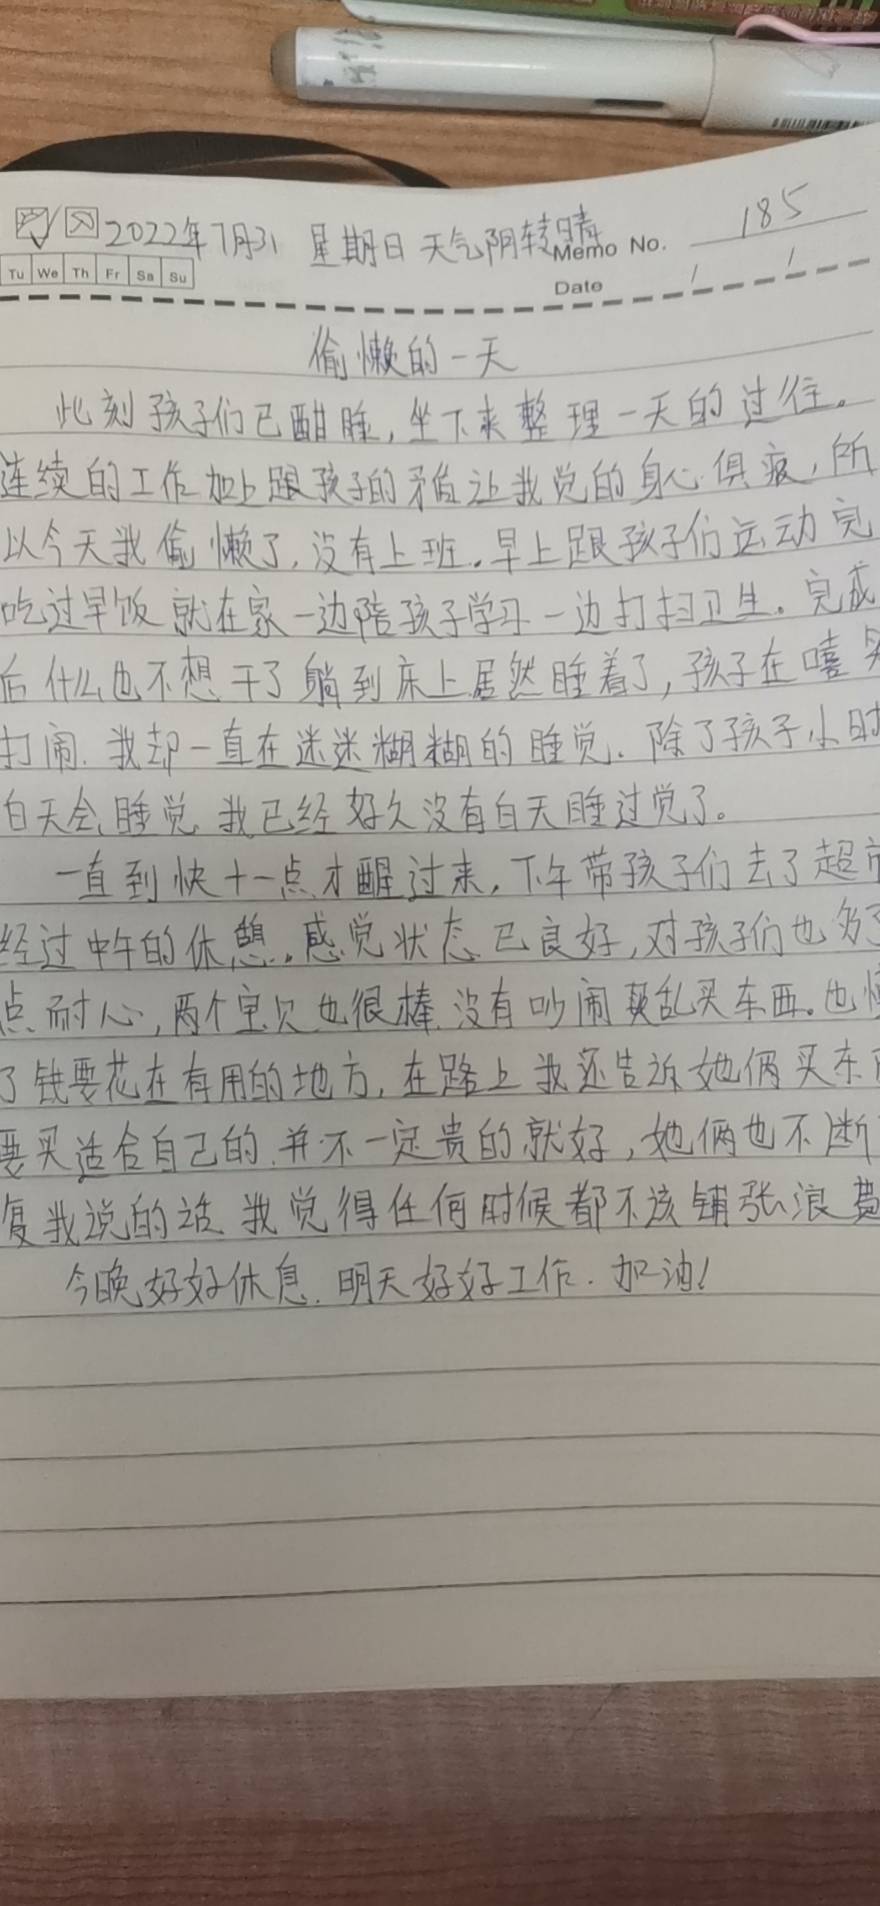 2022年7月31 星期日 天气阴转晴
Memo No. 185
Tu We Th Fr Sa Su
Date / /
偷懒的一天
此刻孩子们已酣睡,坐下来整理一天的过往。
连续的工作加上跟孩子的矛盾让我觉的身心俱疲,所
以今天我偷懒了,没有上班.早上跟孩子们运动完
吃过早饭就在家一边陪孩子学习一边打扫卫生。完成
后什么也不想干了躺到床上居然睡着了,孩子在嘻笑
打闹.我却一直在迷迷糊糊的睡觉.除了孩子小时
白天会睡觉我已经好久没有白天睡过觉了。
一直到快十一点才醒过来,下午带孩子们去了超市
经过中午的休憩,感觉状态已良好,对孩子们也多了
点耐心,两个宝贝也很棒.没有吵闹要乱买东西。也懂
了钱要花在有用的地方,在路上我还告诉她俩买东西
要买适合自己的.并不一定贵的就好,她俩也不断
复我说的话我觉得任何时候都不该铺张浪费
今晚好好休息.明天好好工作.加油!